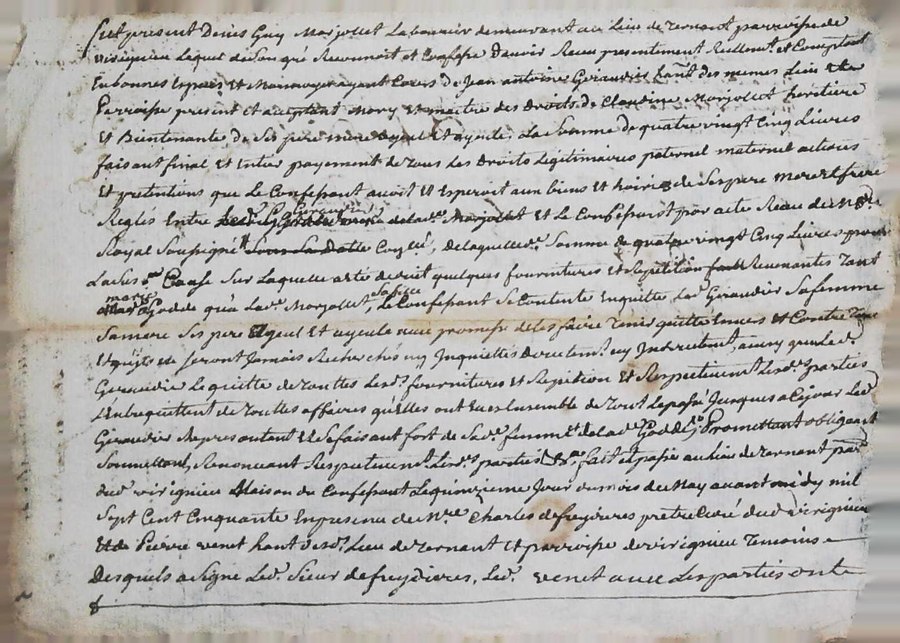 fut present Denis Guy Morjollet Laboureur demeurant au lieu de ternant parroisse de
virignieu Lequel de son gré Reconnoit et Confesse D'avoir Receu presentement Reellemt. et Comptant
En bonnes Especes et Monnoyes ayant Cours De Jean antoine Geraudier hant. des memes Lieu et
Parroisse present et acceptant Mary et maitre des Droits de Claudine Morjollet heretiere
Et Bientenante de Ses pere mere Ayeul Et ayeule, La Somme de quatre vingt Cinq Livres
faisant final et Entier payement de tous Les Droits Legitimaires paternel maternel actions
Et pretentions que Le Confessant avoit Et Esperoit aux biens et hoiries de Ses pere mere et frere
Regles Entre Led. Geraudier de lade. Morjollet Et Le Confessant par acte Receu du Nre.
Royal Soussigné Sous La Datte de laquelle de. Somme de quatre vingt Cinq Livres
Cause Sur Laquelle acte de quelques fournitures et Repetition Revenantes tant
marie a lad. qu'a Lade. Morjollet Sa fille, Le Confessant Se Contente En quitte Led. Geraudier Sa femme
Sa mere Ses pere Ayeul Et ayeule avec promesse de les faire tenir quitte Envers et Contre tous
Et qu'ils ne Seront Jamais Recherchés ny Inquiettés Directemt. ny Indirectemt, ainsy que Led.
Geraudier Le quitte de touttes Lesd. fournitures et Repetition Et Respectivemt. Lesd. parties
S'entrequittent de touttes affaires qu'elles ont eu Ensemble de tout Le passé Jusques a Ce jour Led.
Geraudier Representant et Se faisant fort de Sade. femme Et de lade. Promettant obligeant
Soumettant, Renonceant Respectivemt. Lesd. parties fait et passé au lieu de ternant parr.
dud. virignieu Maison du Confessant Le quinzieme Jour du mois de May avant midy mil
Sept Cent Cinquante En presence de Mre. Charles defreydieres pretre Curé dud. virignieu
Et de Pierre venet hant. Dud. Lieu de ternant Et parroisse de virignieu temoins
Desquels a Signé Led. Sieur defreydieres, Led. venet avec Les parties ont